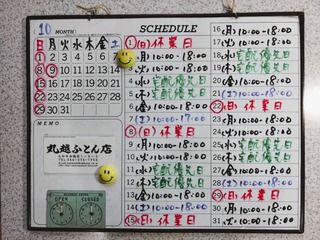 10 MONTH
日 月 火 水 木 金 土
1 2 3 4 5 6 7
8 9 10 11 12 13 14
15 16 17 18 19 20 21
22 23 24 25 26 27 28
29 30 31
MEMO
丸越ふとん店
OPEN CLOSED
SCHEDULE
1 (日) 休業日
2 月 10:00-18:00
3 火 10:00-18:00
4 水 宅配優先日
5 木 宅配優先日
6 金 10:00-18:00
7 (土) 10:00-17:00
8 (日) 休業日
9 月 10:00-18:00
10 火 10:00-18:00
11 水 宅配優先日
12 木 宅配優先日
13 金 10:00-18:00
14 (土) 10:00-17:00
15 (日) 休業日
16 月 10:00-18:00
17 火 10:00-18:00
18 水 宅配優先日
19 木 宅配優先日
20 金 10:00-18:00
21 (土) 10:00-17:00
22 (日) 休業日
23 月 10:00-18:00
24 火 10:00-18:00
25 水 宅配優先日
26 木 宅配優先日
27 金 10:00-18:00
28 (土) 10:00-17:00
29 (日) 休業日
30 月 10:00-18:00
31 火 10:00-18:00